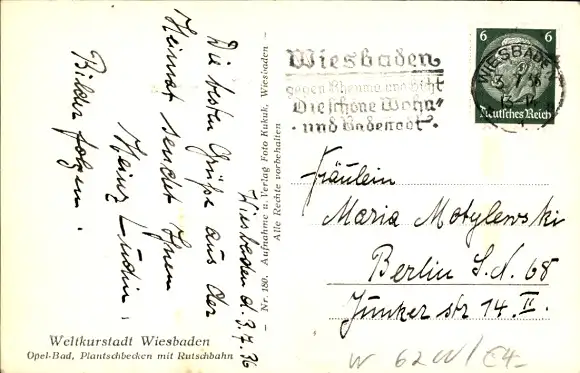 Wiesbaden d. 3.7.36
Die besten Grüße aus der
Heimat sendet Ihnen
Heinz Ludin.
Bilder folgen.
Nr. 180. Aufnahme u. Verlag Foto Kukuk, Wiesbaden
Alle Rechte vorbehalten
Wiesbaden
gegen Rheuma und Gicht
Die schöne Wohn-
und Badestadt.
WIESBADEN
6 6
Deutsches Reich
Fräulein
Maria Motylewski
Berlin S.W. 68
Junker str 14. II.
Weltkurstadt Wiesbaden
Opel-Bad, Plantschbecken mit Rutschbahn
W 62